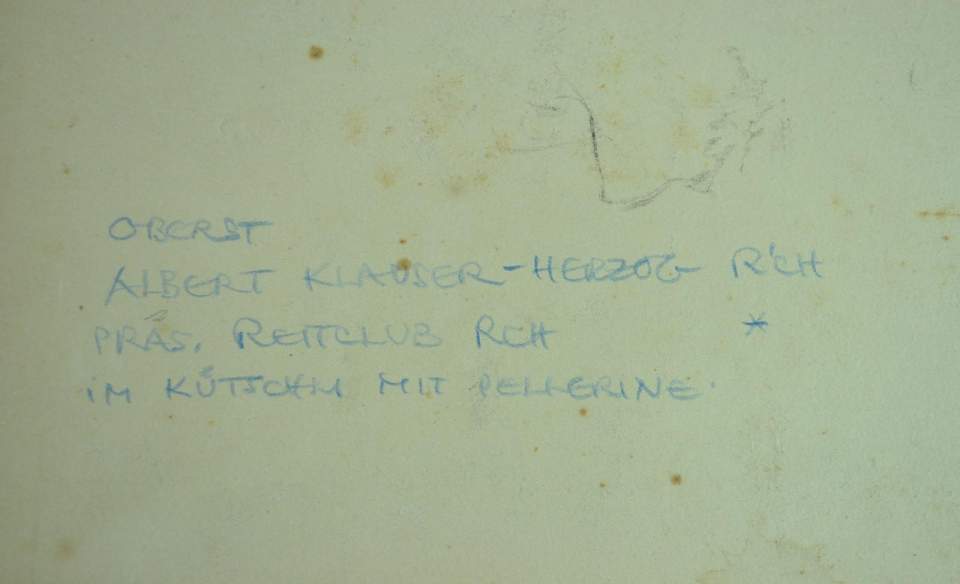 OBERST
ALBERT KLAUSER-HERZOG R'CH
PRÄS. REITCLUB RCH *
IM MIT PELLERINE.